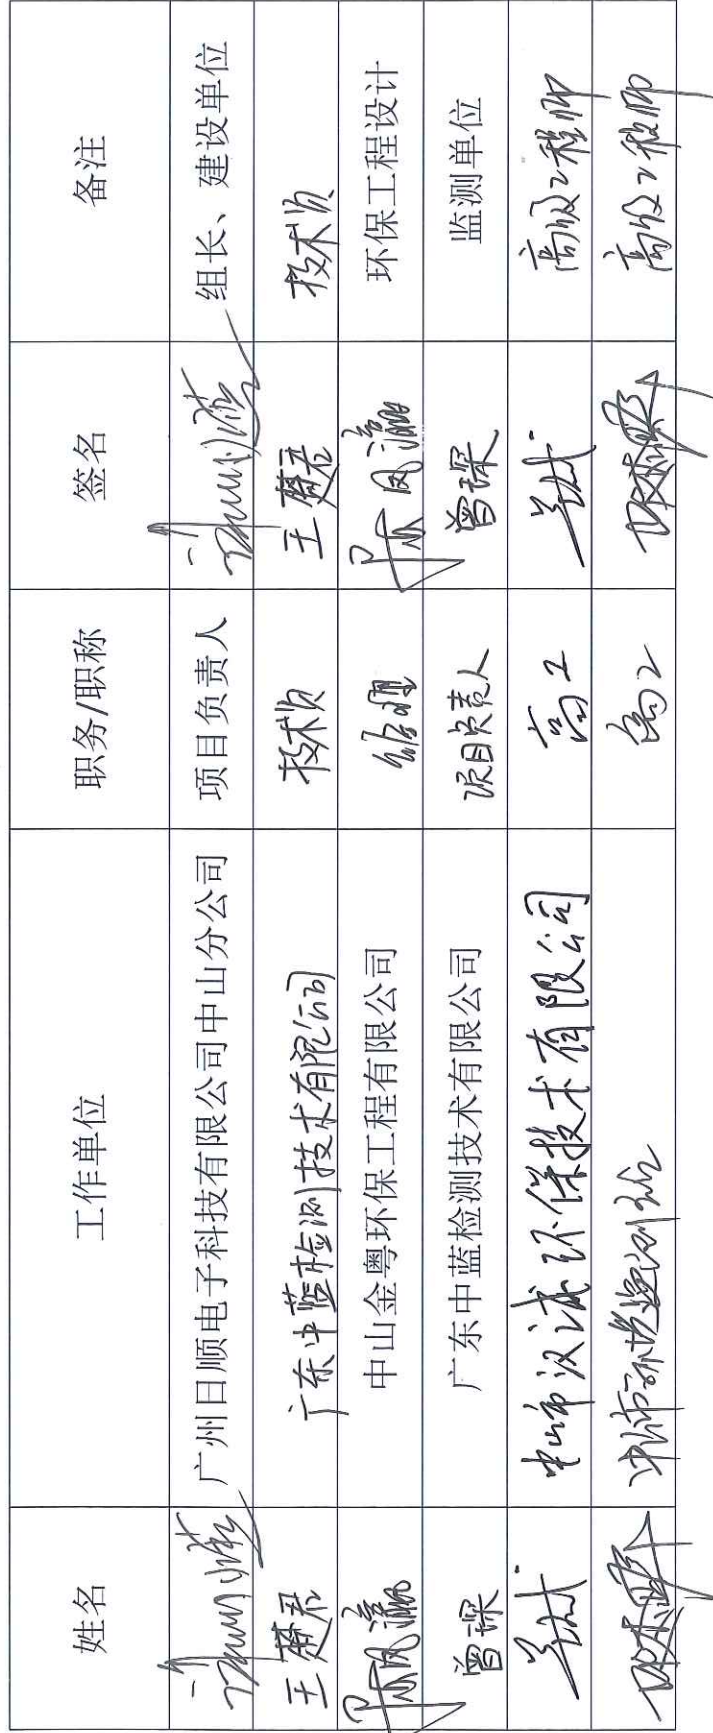 姓名 工作单位 职务/职称 签名 备注
广州日顺电子科技有限公司中山分公司 项目负责人 组长、建设单位
王楚君 广东中蓝检测技术有限公司 技术员 王楚君 技术员
陈凤瀛 中山金粤环保工程有限公司 经理 陈凤瀛 环保工程设计
曾琛 广东中蓝检测技术有限公司 项目负责人 曾琛 监测单位
中山市汉诚环保技术有限公司 高工 高级工程师
高工 高级工程师